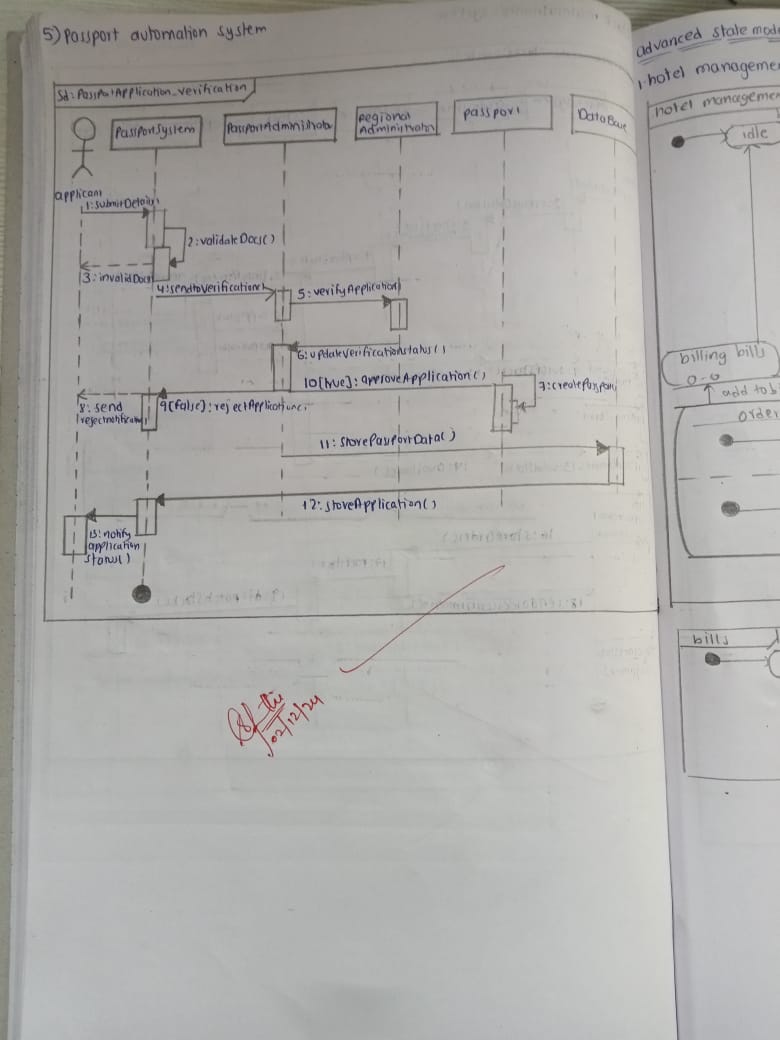 5) Passport automation system
Sd: PassPotApplication_verification
PassPortSystem
PassportAdministrator
Regional
Administrator
Passport
DataBase
applicant
1: submitDetails
2: validateDocs()
3: invalidDocs
4: sendtoverification
5: verifyApplication
6: updateverificationstatus()
10[true]: approveApplication()
7: createPassport
8: send
rejectnotification
9[false]: rejectApplication
11: storePassportData()
12: storeApplication()
13: notify
application
status()
02/12/24
advanced state mod
1. hotel manageme
hotel manageme
idle
billing bills
0-0
add to b
order
bills